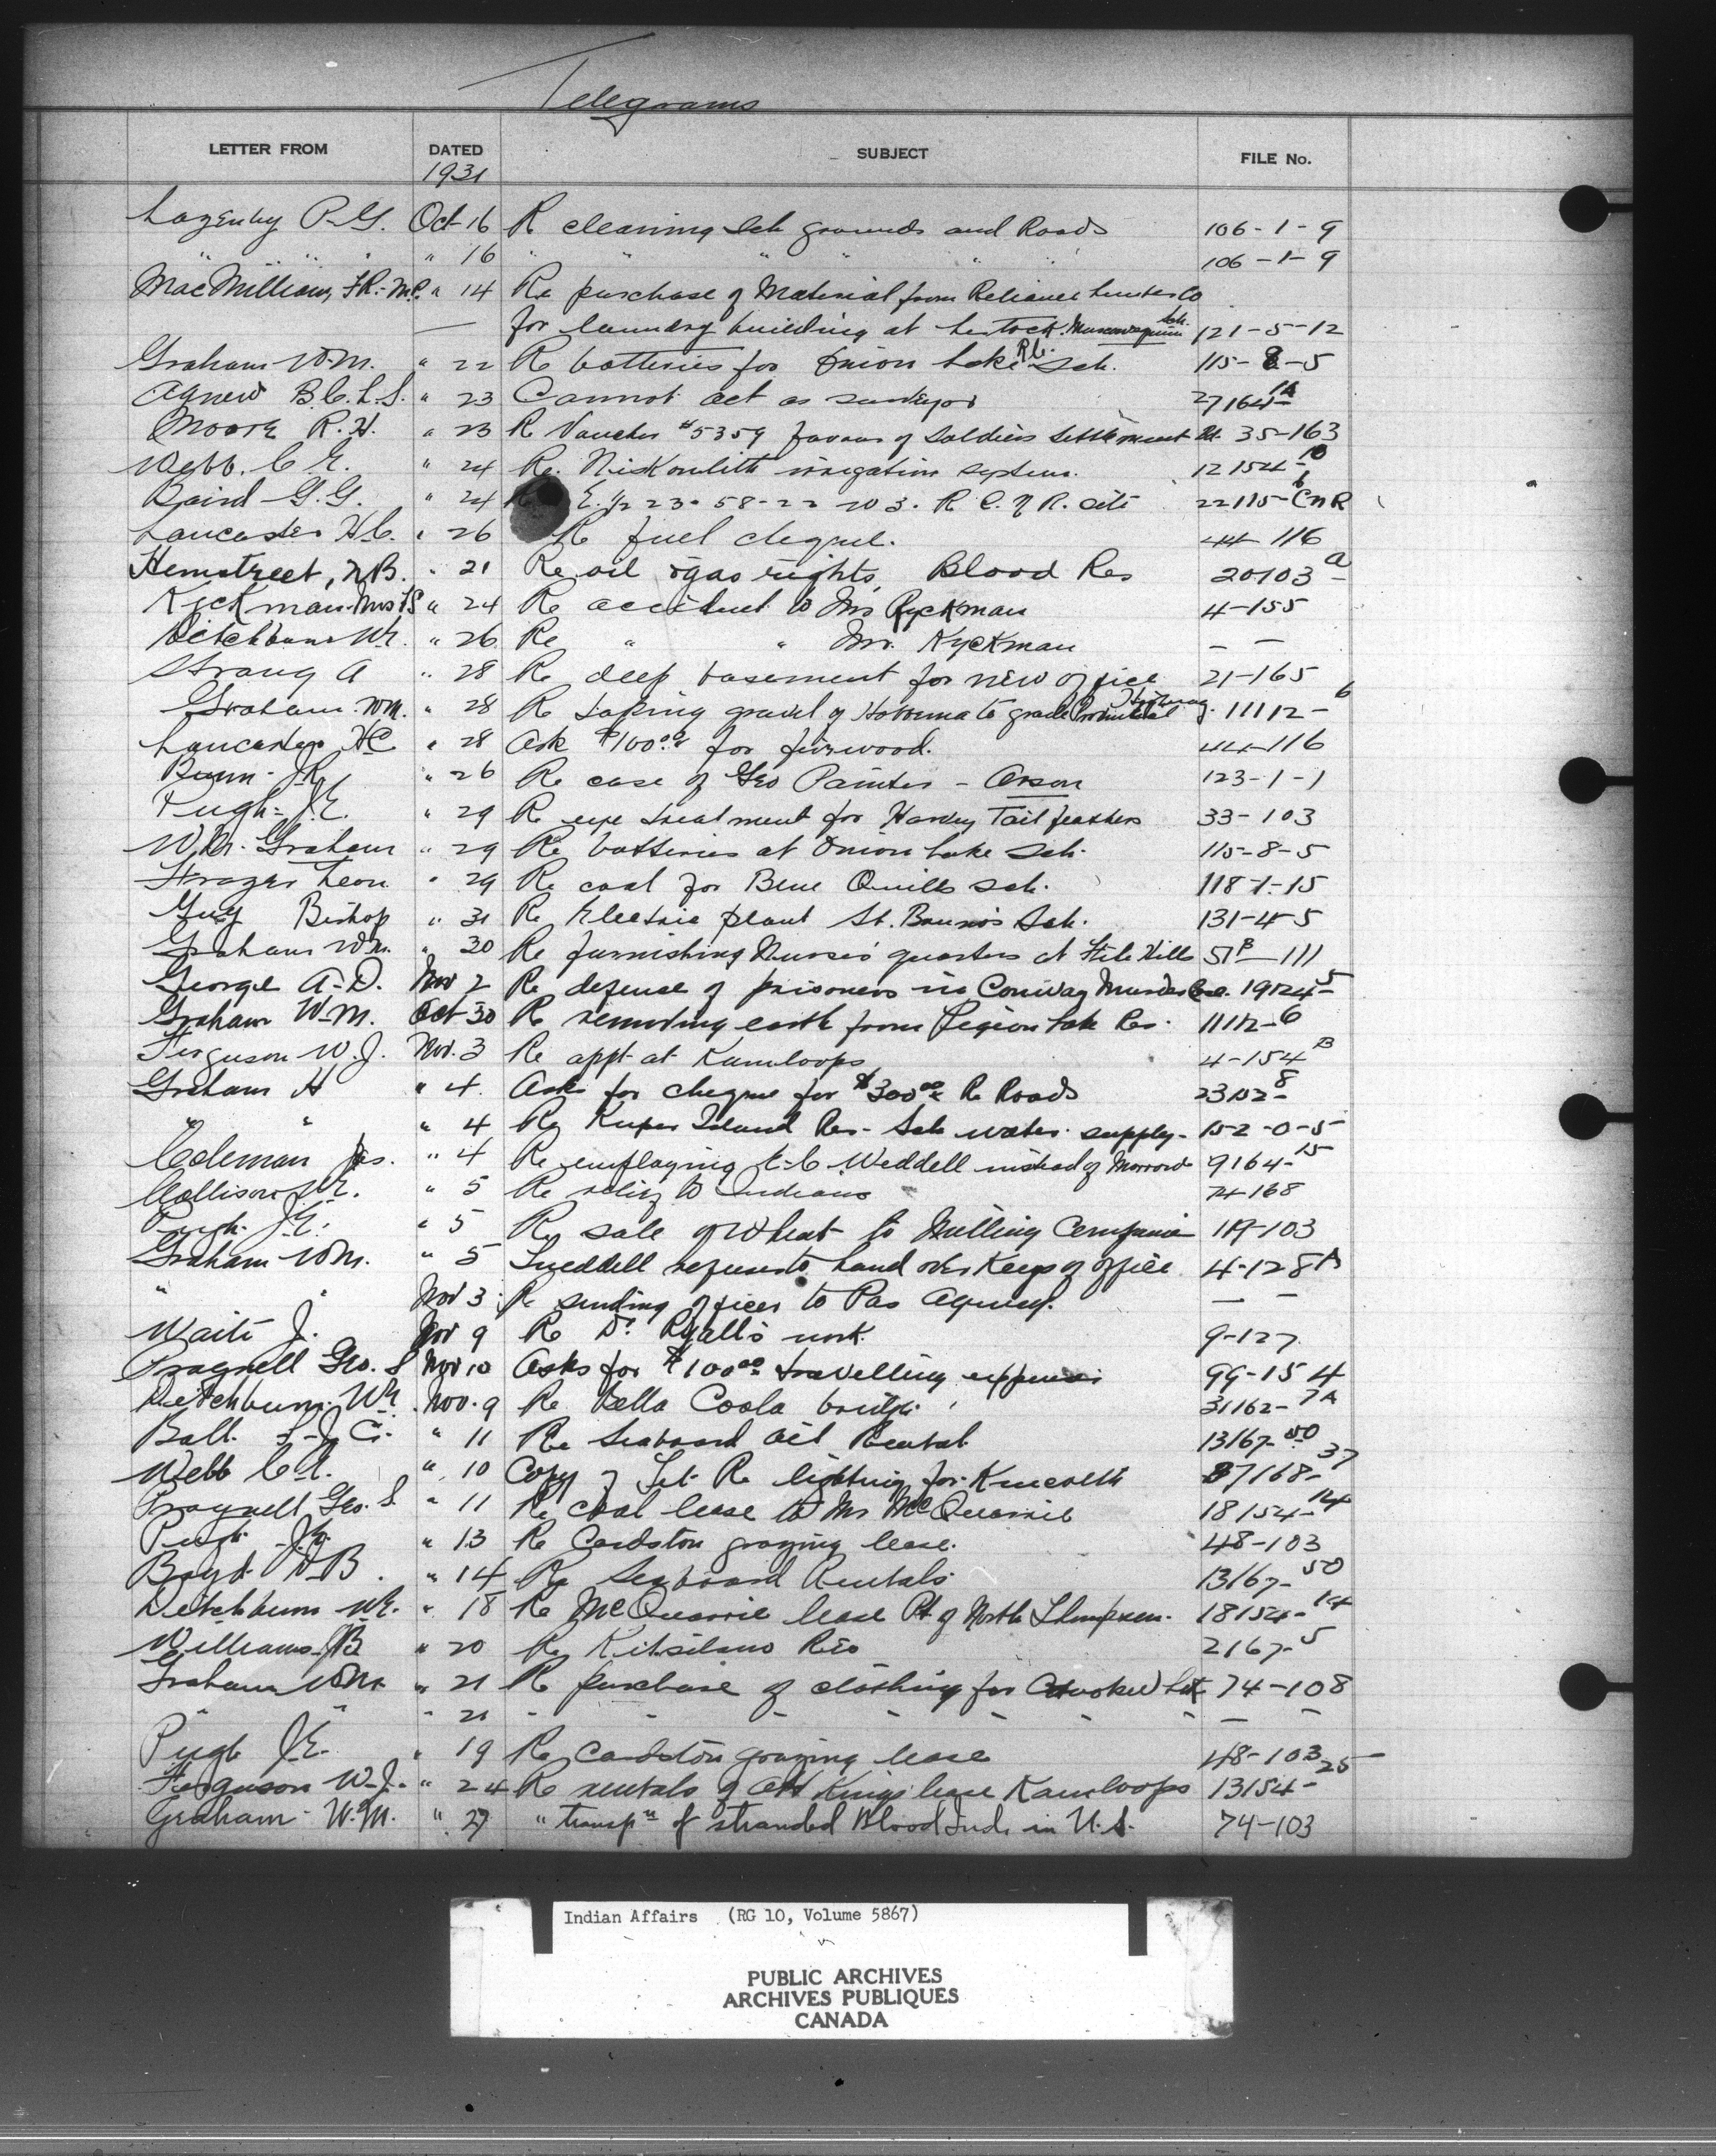 Telegrams
LETTER FROM DATED SUBJECT FILE No.
1931
Lazenby P.G. Oct 16 Re cleaning Sch grounds and Roads 106-1-9
" " " " 16 " " " " " 106-1-9
MacMillian, F.R.-M.P. " 14 Re purchase of Material from Reliance Lumber Co
— for laundry building at Lestock. Muscowequan Sch. 121-5-12
Graham W.M. " 22 Re batteries for Onion Lake R.C. Sch. 115-8-5
Agnew B.C.L.S. " 23 Cannot act as surveyor 27164-1A
Moore R.H. " 23 Re Voucher #5359 favour of Soldiers Settlement Bd. 35-163
Webb. C.E. " 24 Re. Niskonlith irrigation system. 12154-10
Baird G.G. " 24 E. 1/2 23-58-22 W3. Re C.N.R. site 22115-6 CNR
Lancaster H.C. " 26 Re fuel cheque. 44-116
Hemstreet, N.B. " 21 Re oil & gas rights, Blood Res 20103-a
Ryckman Mrs FS " 24 Re accident to Mrs Ryckman 4-155
Ditchburn W.E. " 26 Re " " Mr. Ryckman — —
Strang A " 28 Re deep basement for new office 21-165
Graham. WM. " 28 Re taking gravel of to grade Provincial Highway. 11112-6
Lancaster HC " 28 Ask $100.00 for firewood. 44-116
Bunn. J.R. " 26 Re case of Geo Painter - Arson 123-1-1
Pugh- J.E. " 29 Re eye treatment for Harvey Tailfeathers 33-103
W.M. Graham " 29 Re batteries at Onion Lake Sch. 115-8-5
Leon " 29 Re coal for Blue Quills Sch. 118-1-15
Guy Bishop " 31 Re Electric plant St. Bruno's Sch. 131-4-5
Graham W.M. " 30 Re furnishing Nurse's quarters at File Hills 51B-111
George A.D. Nov 2 Re defense of prisoners in Conway Murder Case. 19124-5
Graham W.M. Oct 30 Re removing earth from Pigeon Lake Res. 11112-6
Ferguson W.J. Nov. 3 Re appt at Kamloops 4-154B
Graham H " 4. Asks for cheque for $300.00 Re Roads 23152-8
" " " 4 Re Kuper Island Res- Sch water supply- 152-0-5
Coleman Jas. " 4 Re employing E.C. Weddell instead of Morrow 9164-15
Collison W.E. " 5 Re relief to Indians 74-168
Pugh J.E. " 5 Re sale of Wheat to Milling Companie 119-103
Graham W.M. " 5 refuses to hand over Keys of office 4-128A
" " Nov 3 Re sending officer to Pas Agency. — —
Waite J. Nov 9 Re Dr. Ryall's work. 9-127
Pragnell Geo. S Nov 10 Asks for $100.00 travelling expenses 99-154
Ditchburn. W.E. Nov. 9 Re Bella Coola bridge. 31162-7A
Ball. F.J.C. " 11 Re Seaboard Oil Rental. 13167-50
Webb C.E. " 10 Copy of Tel. Re lighting for Kincolth 37168-37
Pragnell Geo. S " 11 Re coal lease to Mr McQuarrie 18154-14
Pugh J.E. " 13 Re Cardston grazing lease. 48-103
Boyd D.B. " 14 Re Seaboard Rentals. 13167-50
Ditchburn W.E. " 18 Re McQuarrie lease Pt of North Thompson. 18154-14
Williams JB " 20 Re Kitsilano Res 2167-5
Graham W.M. " 21 Re purchase of clothing for Crooked Lak 74-108
" " " 21 " " " " " " — —
Pugh J.E. " 19 Re Cardston grazing lease 48-103
Ferguson W.J. " 24 Re rentals of King lease Kamloops 13154-25
Graham- W.M. " 27 " transpn of stranded Blood Inds in U.S. 74-103
Indian Affairs (RG 10, Volume 5867)
PUBLIC ARCHIVES
ARCHIVES PUBLIQUES
CANADA